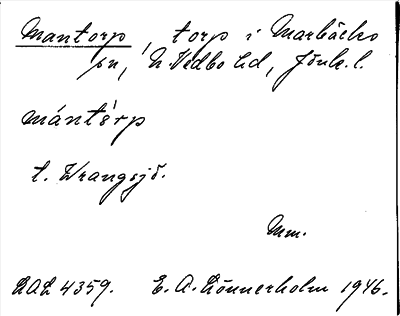 Mantorp, torp i Marbäcks
sn, N. Vedbo hd, Jönk. l.
mántò́rp
t. Wrangsjö.
Mm.
LAL 4359. E. A. Lönnerholm 1946.